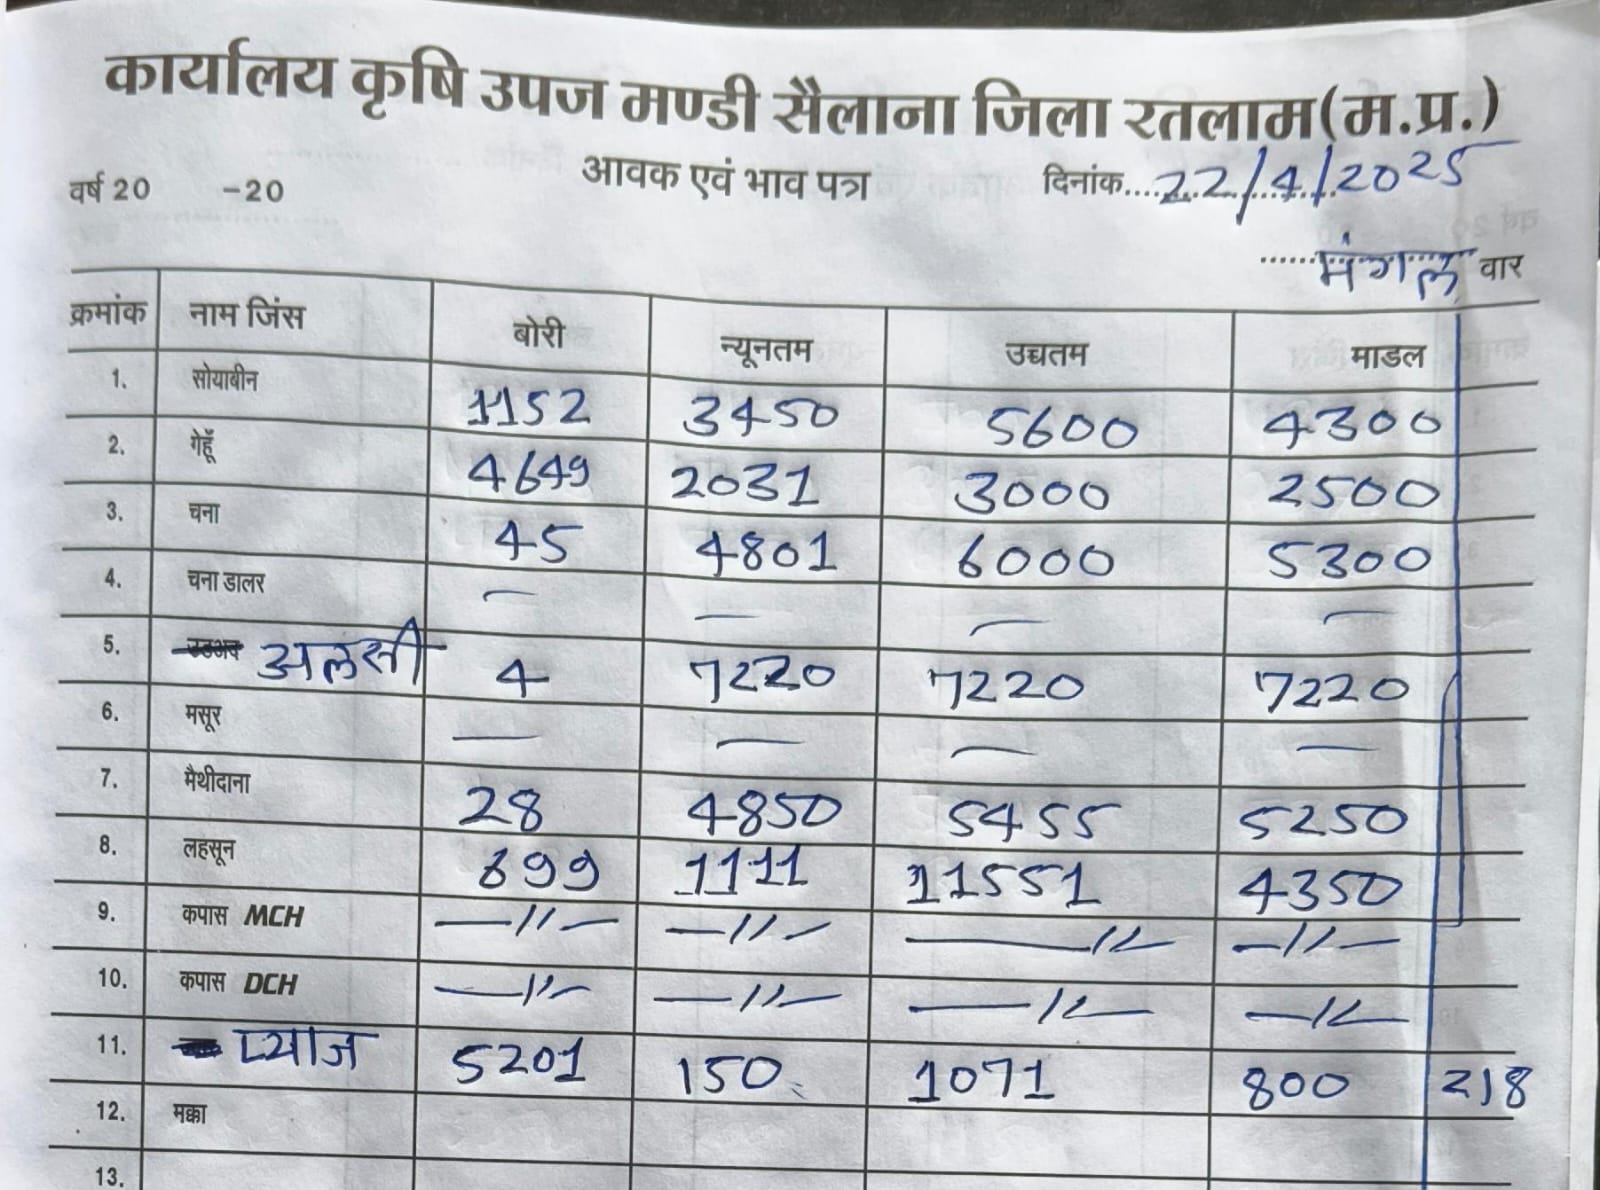 कार्यालय कृषि उपज मण्डी सैलाना जिला रतलाम(म.प्र.)
वर्ष 20 -20 आवक एवं भाव पत्र दिनांक....22/4/2025
......मंगल वार
क्रमांक नाम जिंस बोरी न्यूनतम उच्चतम माडल
1. सोयाबीन 1152 3450 5600 4300
2. गेहूँ 4649 2031 3000 2500
3. चना 45 4801 6000 5300
4. चना डालर — — — —
5. अलसी 4 7220 7220 7220
6. मसूर — — — —
7. मैथीदाना 28 4850 5455 5250
8. लहसून 899 1111 11551 4350
9. कपास MCH —//— —//— —//— —//—
10. कपास DCH —//— —//— —//— —//—
11. प्याज 5201 150 1071 800 218
12. मक्का
13.